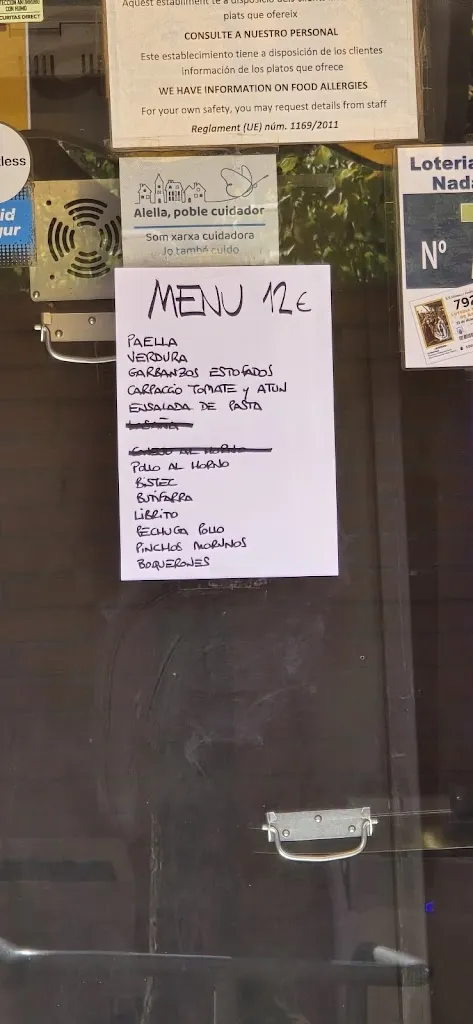 PROTECCIÓN ANTIRROBO
CON HUMO
CURITAS DIRECT
Aquest establiment té a disposició dels clients
plats que ofereix
CONSULTE A NUESTRO PERSONAL
Este establecimiento tiene a disposición de los clientes
información de los platos que ofrece
WE HAVE INFORMATION ON FOOD ALLERGIES
For your own safety, you may request details from staff
Reglament (UE) núm. 1169/2011
tless
id
gur
Alella, poble cuidador
Som xarxa cuidadora
Jo també cuido
Loteria
Nada
Nº
792
MENU 12€
PAELLA
VERDURA
GARBANZOS ESTOFADOS
CARPACCIO TOMATE y ATUN
ENSALADA DE PASTA
POLLO AL HORNO
BISTEC
BUTIFARRA
LIBRITO
PECHUGA POLLO
PINCHOS MORUNOS
BOQUERONES